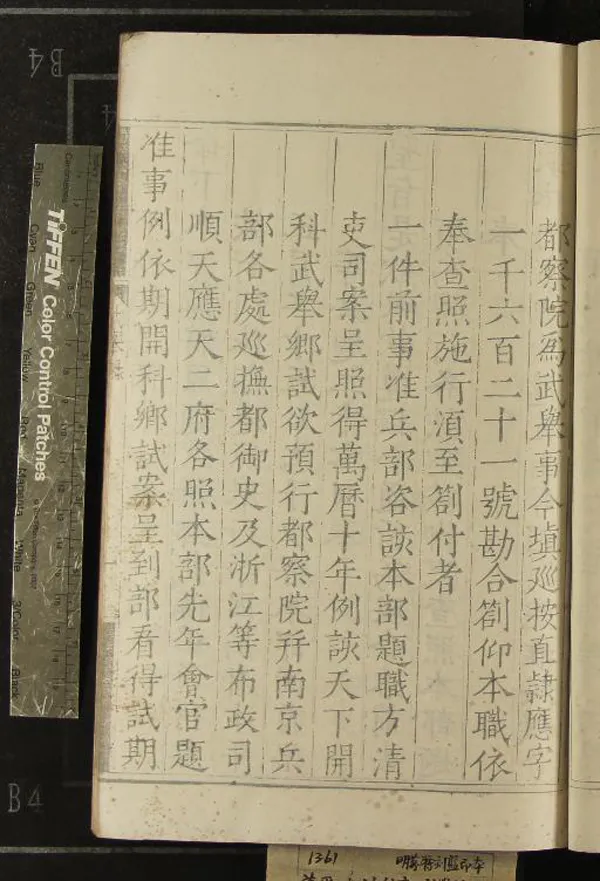 都察院爲武舉事今塡巡按直隷應字
一千六百二十一號勘合劄仰本職依
奉查照施行湏至劄付者
一件前事准兵部咨該本部題職方清
吏司案呈照得萬曆十年例該天下開
科武舉鄉試欲預行都察院幷南京兵
部各處巡撫都御史及浙江等布政司
順天應天二府各照本部先年會官題
准事例依期開科鄉試案呈到部看得試期
B4
TIFFEN Color Control Patches
Blue
Cyan
Green
Yellow
Red
Magenta
White
3/Color
Black
B4
1361